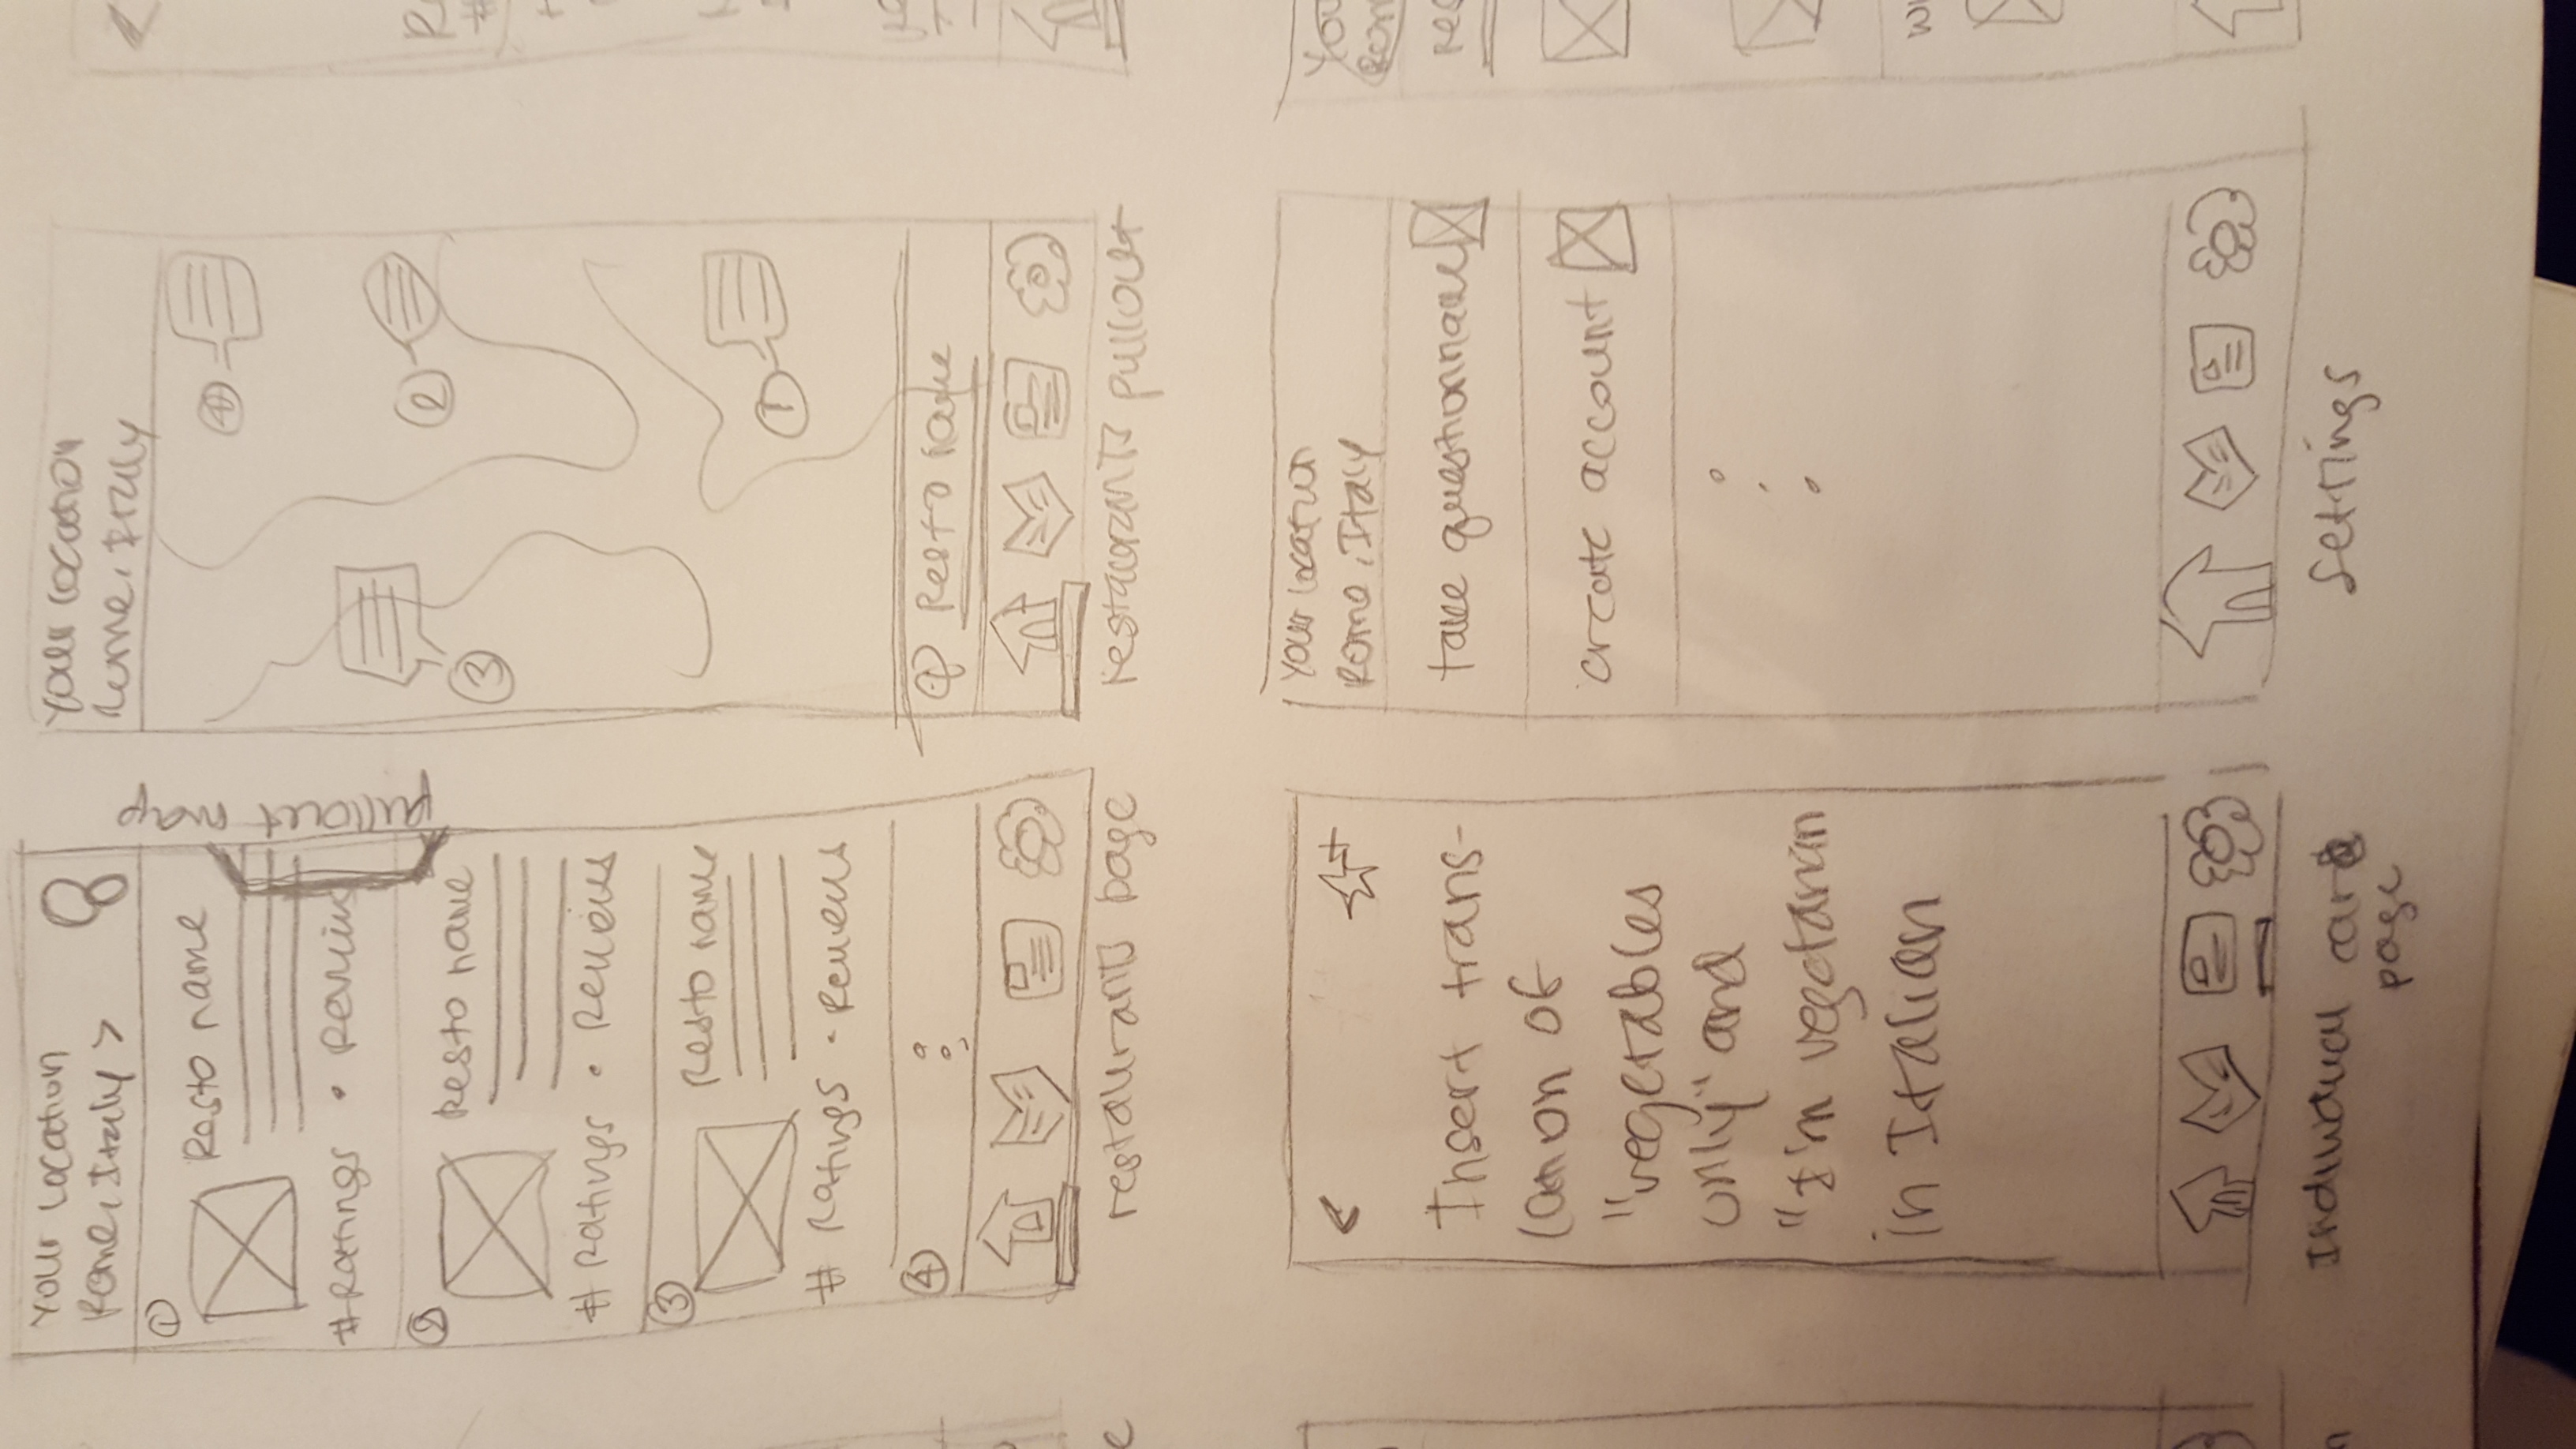 Your Location
Rome, Italy >
①
Resto name
# Ratings • Reviews
pullout map
②
Resto name
# Ratings • Reviews
③
Resto name
# Ratings • Reviews
④
restaurants page
Your Location
Rome, Italy
④
③
②
①
Resto name
restaurants pullout
<
Insert trans-
lation of
"vegetables
only" and
"I'm vegetarian
in Italian
Individual card
page
Your location
Rome, Italy
take questionnaire
create account
Settings
<
You
Rom
Res